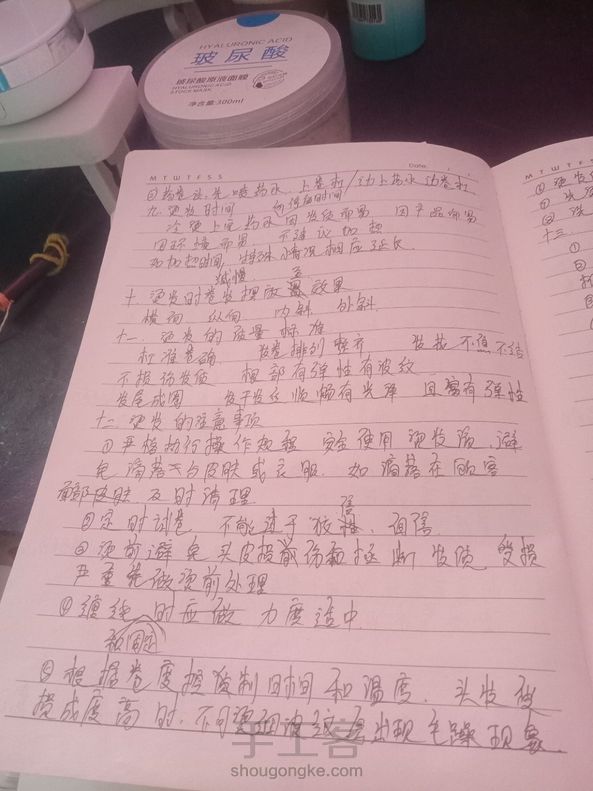 HYALURONIC ACID
玻尿酸
玻尿酸原液面膜
HYALURONIC ACID
STOCK MASK
净含量:300ml
M T W T F S S
Date:
M T W T F S S
②药卷法,先喷药水,上卷杠/边上药水边卷杠
九、烫发时间 的停留时间
冷烫上完药水因发质而男 因产品而男
因环境而男 不建议加热
如加热时间,特殊情况相应延长
减慢
十、烫发时卷发摆放 效果
横向 纵向 内斜 外斜
十一、烫发的质量标准
标准卷确 发卷排列整齐 发花不值不结
不损伤发质 根部有弹性有波纹
发尾成圈 发干发丝顺畅有光弹 且富有弹性
十二、烫发的注意事项
①严格执行操作规程 安全使用烫发液,避
免滴落于与皮肤或衣服.如滴落在顾客
面部皮肤 及时清理
信
②定时试卷 不能过于按 值信
③烫前避免头皮损伤和拯断 发质受损
严重先做烫前处理
④缠绕时应做力度适中
被固定
⑤根据卷度控制时间和温度. 头发被
烫成度高时,不可 出现毛躁现象.
手工客
shougongke.com